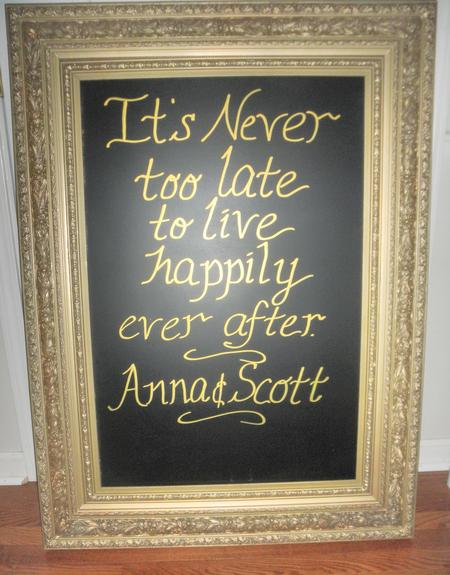 It's Never
too late
to live
happily
ever after.
Anna & Scott